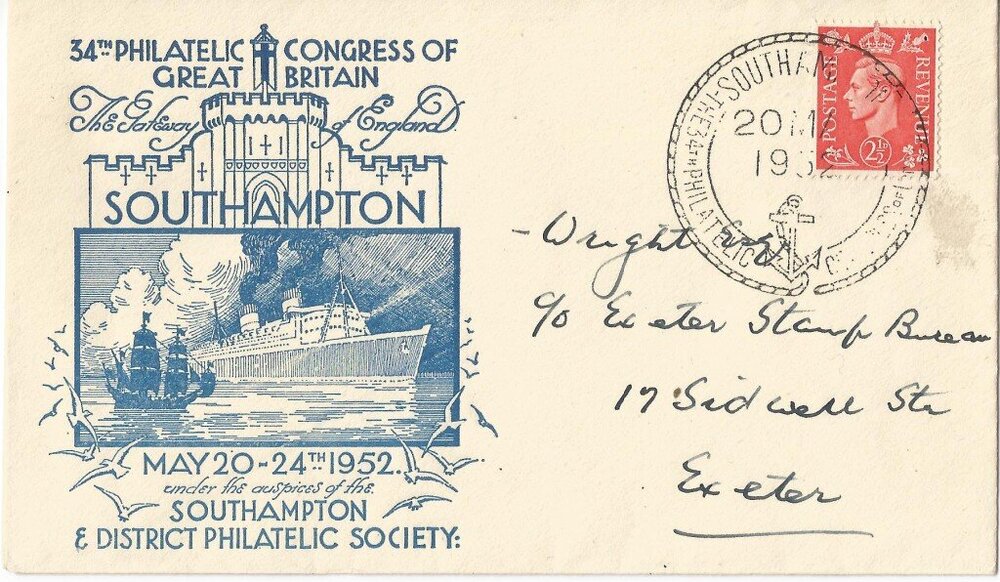 34TH PHILATELIC CONGRESS OF
GREAT BRITAIN
The Gateway of England.
SOUTHAMPTON
MAY 20-24TH 1952.
under the auspices of the
SOUTHAMPTON
& DISTRICT PHILATELIC SOCIETY:
THE 34TH PHILATELIC
SOUTHAM
20 MY
1952
POSTAGE
REVENUE
2½D
Wright
c/o Exeter Stamp Bureau
17 Sidwell Str
Exeter